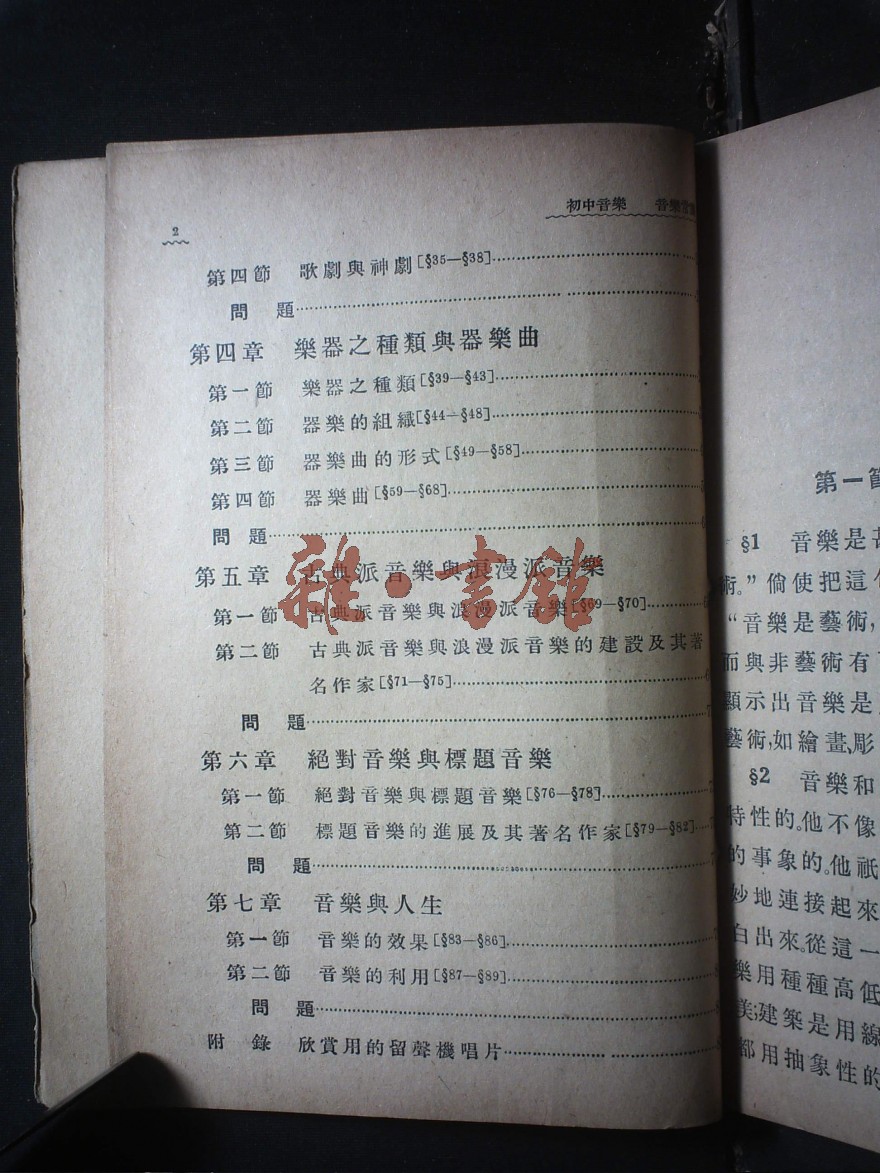 2
初中音樂 音樂
第四節 歌劇與神劇[§35—§38]
問題
第四章 樂器之種類與器樂曲
第一節 樂器之種類[§39—§43]
第二節 器樂的組織[§44—§48]
第三節 器樂曲的形式[§49—§58]
第四節 器樂曲[§59—§68]
問題
第五章 古典派音樂與浪漫派音樂
第一節 古典派音樂與浪漫派音樂[§69—§70]
第二節 古典派音樂與浪漫派音樂的建設及其著
名作家[§71—§75]
問題
第六章 絕對音樂與標題音樂
第一節 絕對音樂與標題音樂[§76—§78]
第二節 標題音樂的進展及其著名作家[§79—§82]
問題
第七章 音樂與人生
第一節 音樂的效果[§83—§86]
第二節 音樂的利用[§87—§89]
問題
附錄 欣賞用的留聲機唱片
雜·書館
第一節
§1 音樂是
術。”倘使把這
“音樂是藝術,
而與非藝術有
顯示出音樂是
藝術,如繪畫、彫
§2 音樂和
特性的。他不像
的事象的。他祇
妙地連接起來
白出來。從這一
樂用種種高低
美;建築是用線
都用抽象性的